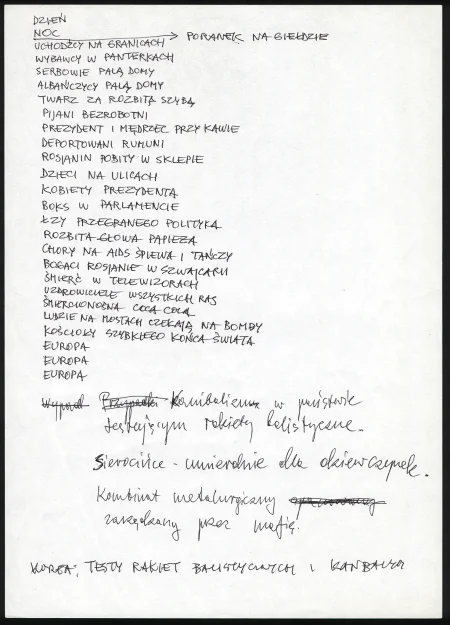 DZIEŃ
NOC → PORANEK NA GIEŁDZIE
UCHODŹCY NA GRANICACH
WYBAWCY W PANTERKACH
SERBOWIE PALĄ DOMY
ALBAŃCZYCY PALĄ DOMY
TWARZ ZA ROZBITĄ SZYBĄ
PIJANI BEZROBOTNI
PREZYDENT I MĘDRZEC PRZY KAWIE
DEPORTOWANI RUMUNI
ROSJANIN POBITY W SKLEPIE
DZIECI NA ULICACH
KOBIETY PREZYDENTA
BOKS W PARLAMENCIE
ŁZY PRZEGRANEGO POLITYKA
ROZBITA GŁOWA PAPIEŻA
CHORY NA AIDS ŚPIEWA I TAŃCZY
BOGACI ROSJANIE W SZWAJCARII
ŚMIERĆ W TELEWIZORACH
UZDROWICIELE WSZYSTKICH RAS
ŚMIERCIONOŚNA COCA COLA
LUDZIE NA MOSTACH CZEKAJĄ NA BOMBY
KOŚCIOŁY SZYBKIEGO KOŃCA ŚWIATA
EUROPA
EUROPA
EUROPA
Kanibalizm w państwie
testującym rakiety balistyczne.
Sierocińce - umieralnie dla dziewczynek.
Kombinat metalurgiczny
zarządzany przez mafię.
KOREA; TESTY RAKIET BALISTYCZNYCH I